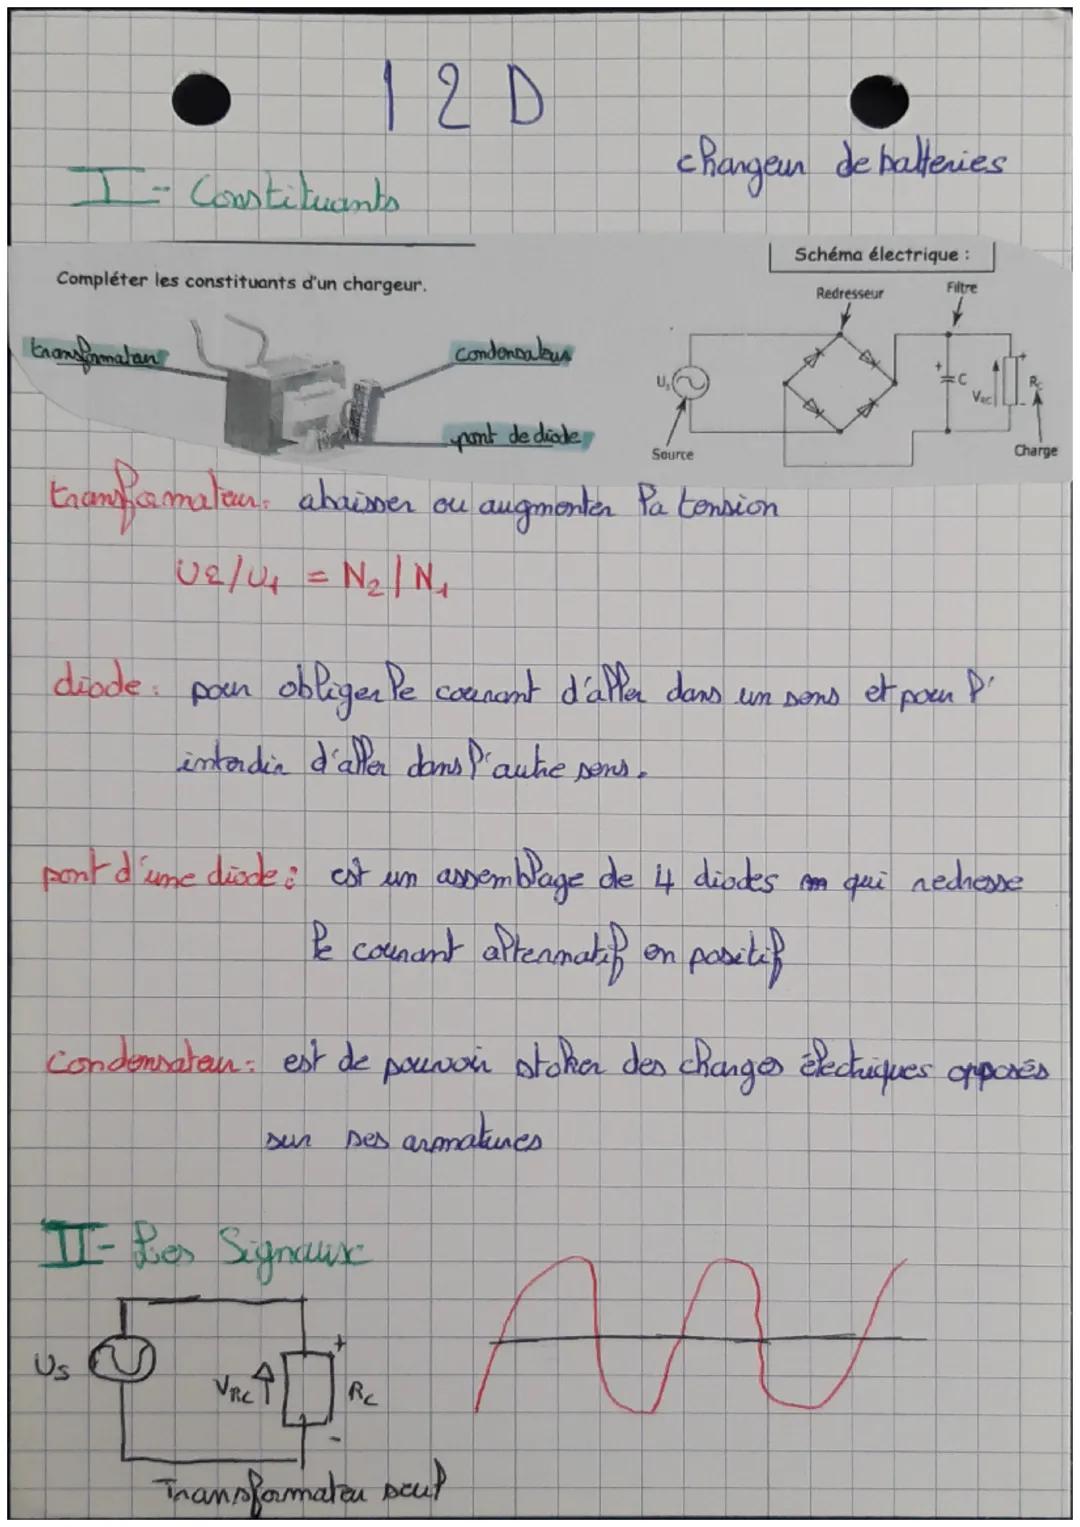 12D
chargeur de batteries
I - Constituants
Schéma électrique :
Compléter les constituants d'un chargeur.
Redresseur
Filtre
transformateur
condensateur
Us
+
C
VRC
+
-
Rc
pont de diode
Source
Charge
transformateur: abaisser ou augmenter la tension
U2/U1 = N2/N1
diode: pour obliger le courant d'aller dans un sens et pour l'
interdir d'aller dans l'autre sens.
pont d'une diode: est un assemblage de 4 diodes qui redresse
le courant alternatif en positif
condensateur: est de pouvoir stoker des charges électriques opposés
sur ses armatures
II - Les Signaux
Us
VRC
+
Rc
-
Transformateu seul